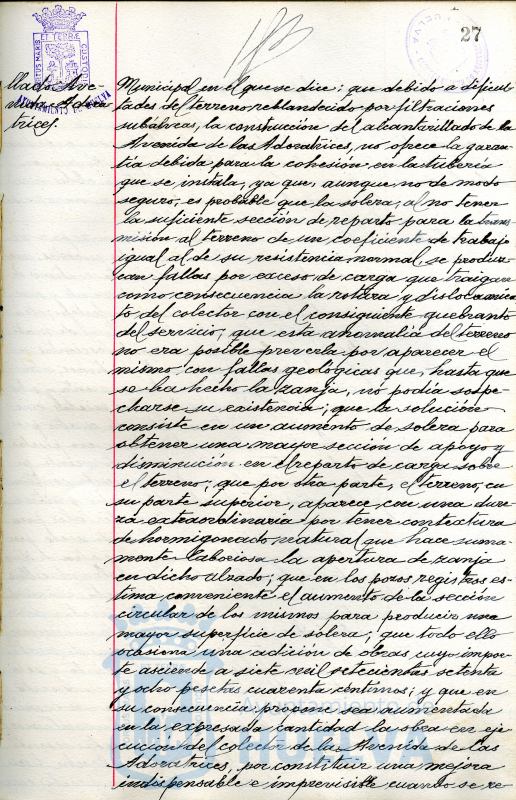 27
llado Ave-
nida Adora
trices.
Municipal en el que se dice; que debido a dificul-
tades del terreno, reblandecido por filtraciones
subálveas, la construcción del alcantarillado de la
Avenida de las Adoratrices, no ofrece la garan-
tía debida para la cohesión en la tubería
que se instala, ya que, aunque no de modo
seguro, es probable que la solera, al no tener
la suficiente sección de reparto para la trans-
misión al terreno de un coeficiente de trabajo
igual al de su resistencia normal, se produz-
can fallas por exceso de carga que traigan
como consecuencia la rotura y dislocamien-
to del colector con el consiguiente quebranto
del servicio; que esta anomalía del terreno
no era posible preverla por aparecer el
mismo con fallas geológicas que, hasta que
se ha hecho la zanja, no podía sospe-
charse su existencia; que la solución
consiste en un aumento de solera para
obtener una mayor sección de apoyo y
disminución en el reparto de carga sobre
el terreno; que por otra parte, el terreno, en
su parte superior, aparece con una dure-
za extraordinaria por tener contextura
de hormigonado natural que hace suma-
mente laboriosa la apertura de zanja
en dicho alzado; que en los pozos registros es-
tima conveniente el aumento de la sección
circular de los mismos para producir una
mayor superficie de solera; que todo ello
ocasiona una adición de obras cuyo impor-
te asciende a siete mil setecientas setenta
y ocho pesetas cuarenta céntimos; y que en
su consecuencia propone sea aumentada
en la expresada cantidad la obra en eje-
cución del colector de la Avenida de las
Adoratrices, por constituir una mejora
indispensable e imprevisible cuando se re-